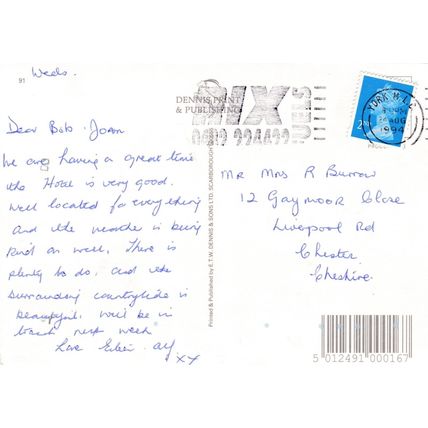 91
Weds.
Dear Bob & Joan
We are having a great time
the Hotel is very good.
Well located for everything
and the weather is being
kind as well. There is
plenty to do. and the
surrounding countryside is
beautiful. We'll be in
touch next week
Love Eileen
xx
DENNIS PRINT
& PUBLISHING
MIX
YORK
AUG
1994
2
Mr Mrs R Burrow
12 Gaymoor Close
Liverpool Rd
Chester.
Cheshire.
Printed & Published by E.T.W. DENNIS & SONS LTD. SCARBOROUGH
5 012491 000167